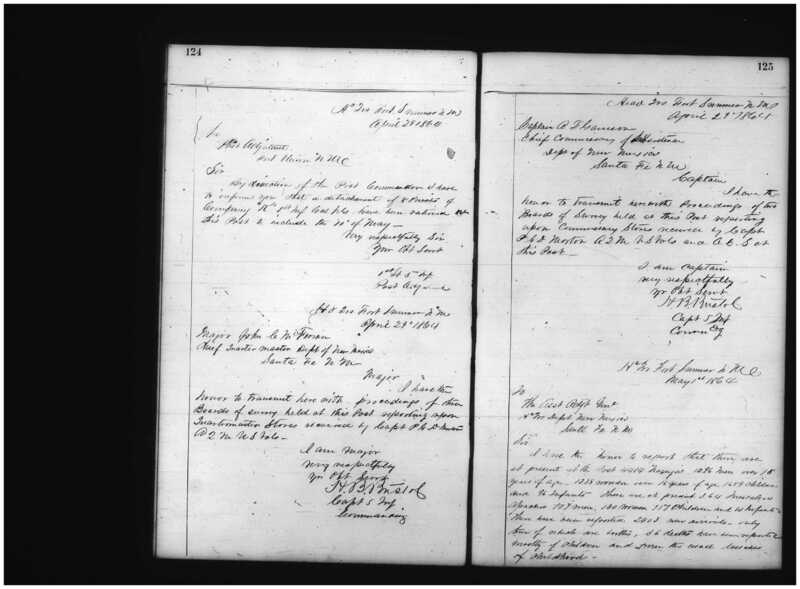 124
Hd Qrs Fort Sumner N M
April 29 1864
To
Post Adjutant
Fort Union N M
Sir
By direction of the Post Commander I have
to inform you that a detachment of 8 Privates of
Company 1st Inf Cal Vols have been rationed
this Post to include the of May
Very respectfully Sir
Your Obt Servt
1st Lt 5th Inf
Post Adjt
Hd Qrs Fort Sumner N Me
April 29th 1864
Major John C McFerran
Chief Quarter master Dept of New Mexico
Santa Fe N Me
Major
I have the
honor to transmit here with proceedings of three
Boards of survey held at this Post reporting upon
Quartermaster Stores received by Capt
A Q M U S Vols
I am Major
very respectfully
Yr Obt Servt
H. B. Bristol
Capt 5 Inf
Commanding
125
Head Qrs Fort Sumner N Me
April 29th 1864
Captain
Chief Commissary of
Dept of New Mexico
Santa Fe N Me
Captain
I have the
honor to transmit herewith Proceedings of two
Boards of Survey held at this Post reporting
upon Commissary Stores received by Capt
Morton A Q M U S Vols and A C S at
this Post
I am Captain
very respectfully
Yr Obt Servt
H. B. Bristol
Capt 5 Inf
Comdg
Hd Qrs Fort Sumner N Me
May 1st 1864
To
The Asst Adjt Genl
Hd Qrs Dept New Mexico
Santa Fe N Me
Sir
I have the honor to report that there are
at present at the Post Navajos men over 18
years of age women over years of age children
and Infants There are at present Mescalero
Apaches men, women children and Infants
There have been reported new arrivals only
of which are births, deaths have been reported
mostly of children and from the usual diseases
of childhood